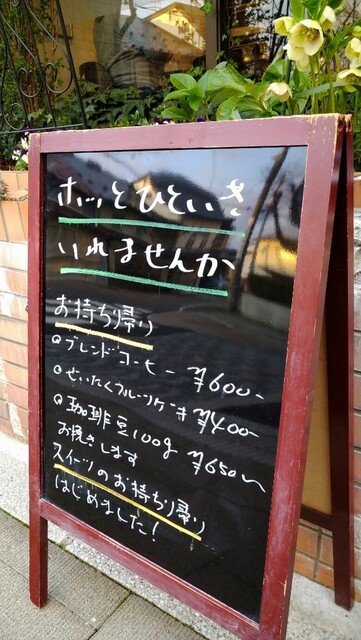 ホッとひといき
いれませんか
お持ち帰り
◎ブレンドコーヒー ¥600-
◎ぜいたくフルーツケーキ ¥400-
◎珈琲豆100g ¥650〜
お挽きします
スイーツのお持ち帰り
はじめました!